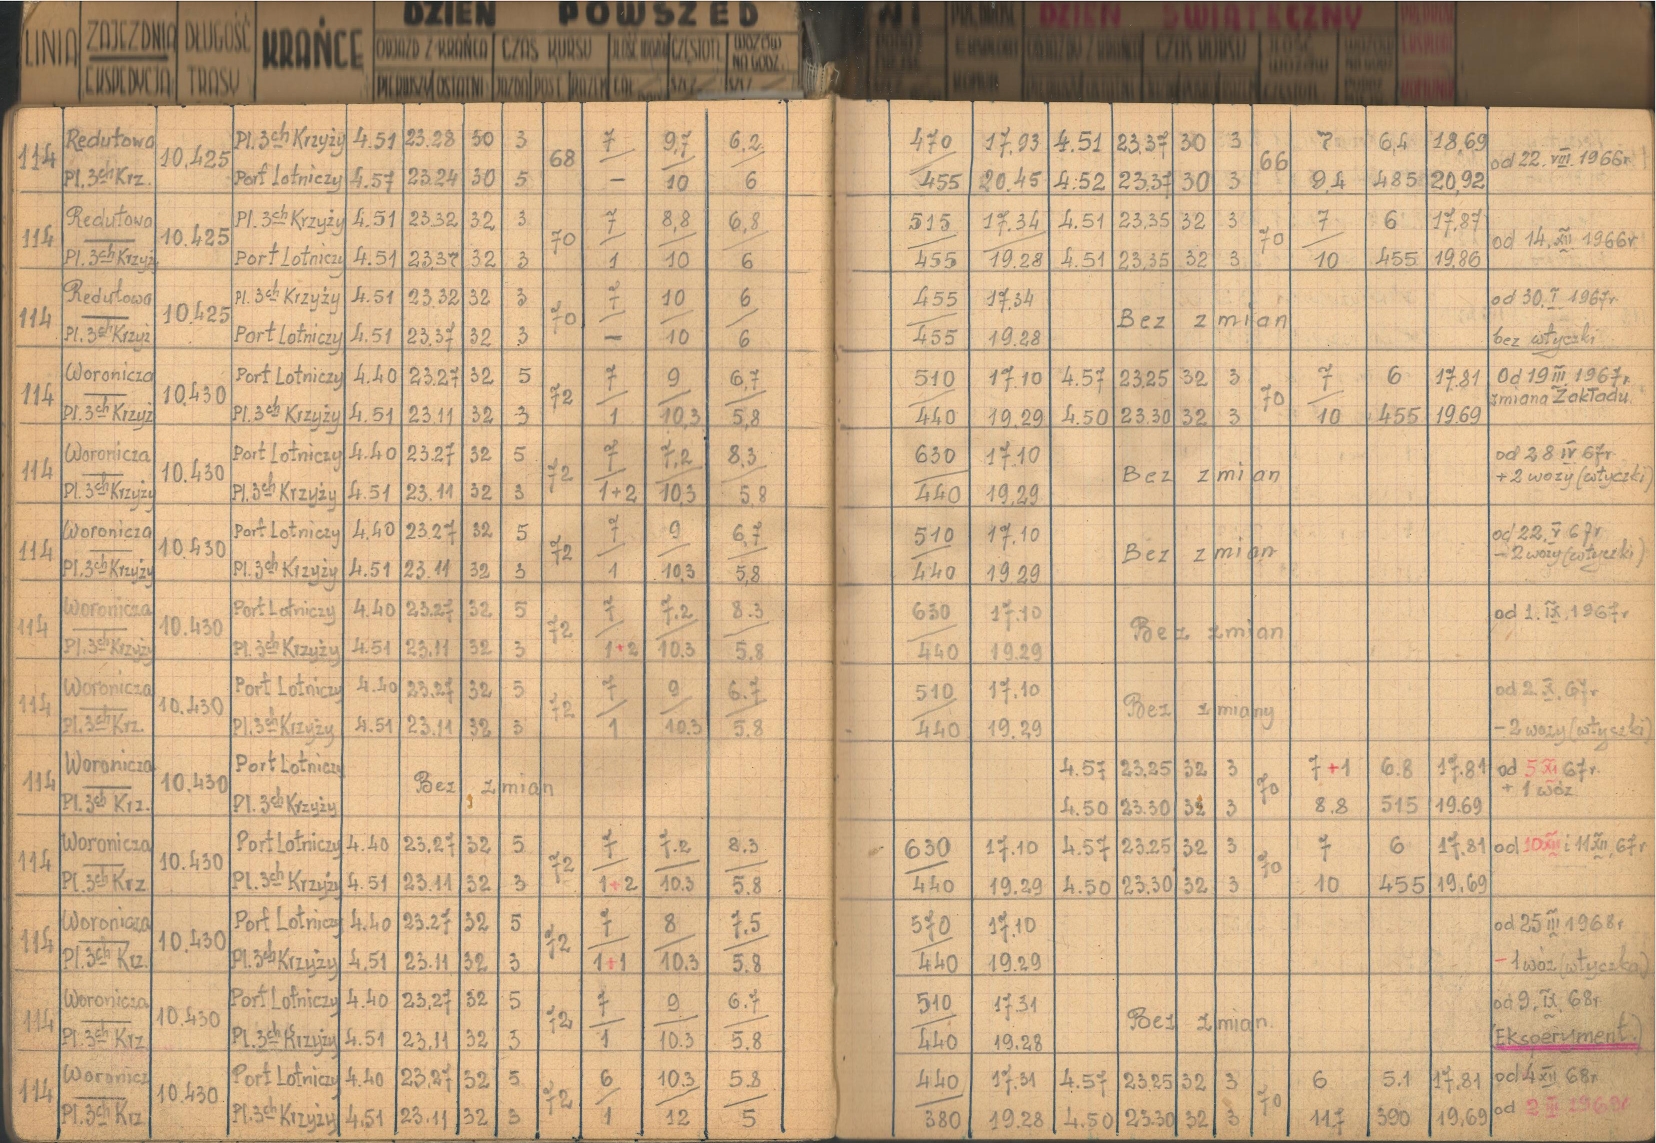 LINIA ZAJEZDNIA EKSPEDYCJA DŁUGOŚĆ TRASY KRAŃCE DZIEŃ POWSZED
ODJAZD Z KRAŃCA CZAS KURSU CZĘSTOT. WOZÓW NA GODZ.
PIERWSZY OSTATNI JAZDA POST. RAZEM
NI DZIEŃ ŚWIĄTECZNY
CZAS KURSU ILOŚĆ WOZÓW
114 Redutowa 10.425 Pl. 3ch Krzyży 4.51 23.28 30 3 68 7 9,7 6,2 470 17,93 4.51 23,37 30 3 66 7 6,4 18,69 od 22. VIII 1966r
Pl. 3ch Krz. Port Lotniczy 4.57 23.24 30 5 – 10 6 455 20,45 4:52 23,37 30 3 9,4 485 20,92
114 Redutowa 10.425 Pl. 3ch Krzyży 4.51 23.32 32 3 70 7 8,8 6,8 515 17,34 4.51 23,35 32 3 70 7 6 17,87 od 14. XII 1966r
Pl. 3ch Krzyż Port Lotniczy 4.51 23,37 32 3 1 10 6 455 19.28 4.51 23,35 32 3 10 455 19,86
114 Redutowa 10.425 Pl. 3ch Krzyży 4.51 23,32 32 3 70 7 10 6 455 17,34 Bez zmian od 30. I 1967r
Pl. 3ch Krzyż Port Lotniczy 4.51 23,37 32 3 – 10 6 455 19.28 bez wtyczki
114 Woronicza 10.430 Port Lotniczy 4.40 23.27 32 5 72 7 9 6,7 510 17.10 4.57 23,25 32 3 70 7 6 17,81 Od 19 III 1967r
zmiana Zakładu
Pl. 3ch Krzyż Pl. 3ch Krzyży 4.51 23.11 32 3 1 10,3 5,8 440 19,29 4.50 23.30 32 3 10 455 19.69
114 Woronicza 10.430 Port Lotniczy 4.40 23.27 32 5 72 7 7,2 8,3 630 17.10 Bez zmian od 28 IV 67r
Pl. 3ch Krzyży Pl. 3ch Krzyży 4.51 23.11 32 3 1+2 10,3 5,8 440 19,29 +2 wozy (wtyczki)
114 Woronicza 10.430 Port Lotniczy 4.40 23.27 32 5 72 7 9 6,7 510 17.10 Bez zmian od 22. V 67r
Pl. 3ch Krzyży Pl. 3ch Krzyży 4.51 23.11 32 3 1 10,3 5,8 440 19.29 – 2 wozy (wtyczki)
114 Woronicza 10.430 Port Lotniczy 4.40 23.27 32 5 72 7 7.2 8.3 630 17.10 Bez zmian od 1. IX. 1967r
Pl. 3ch Krzyży Pl. 3ch Krzyży 4.51 23.11 32 3 1+2 10.3 5.8 440 19.29
114 Woronicza 10.430 Port Lotniczy 4.40 23.27 32 5 72 7 9 6.7 510 17.10 Bez zmiany od 2. X. 67r
Pl. 3ch Krz. Pl. 3ch Krzyży 4.51 23.11 32 3 1 10.3 5.8 440 19.29 – 2 wozy (wtyczki)
114 Woronicza 10.430 Port Lotniczy Bez zmian 4.57 23,25 32 3 70 7+1 6.8 17.81 od 5 XI 67r.
+ 1 wóz
Pl. 3ch Krz. Pl. 3ch Krzyży 4.50 23.30 32 3 8.8 515 19.69
114 Woronicza 10.430 Port Lotniczy 4.40 23.27 32 5 72 7 7.2 8.3 630 17.10 4.57 23.25 32 3 70 7 6 17.81 od 10 XII i 11 XII, 67r
Pl. 3ch Krz Pl. 3ch Krzyży 4.51 23.11 32 3 1+2 10.3 5.8 440 19.29 4.50 23,30 32 3 10 455 19,69
114 Woronicza 10.430 Port Lotniczy 4.40 23.27 32 5 72 7 8 7,5 570 17.10 od 25 III 1968r
Pl. 3ch Krz. Pl. 3ch Krzyży 4.51 23.11 32 3 1+1 10.3 5.8 440 19.29 – 1 wóz (wtyczka)
114 Woronicza 10.430 Port Lotniczy 4.40 23,27 32 5 72 7 9 6.7 510 17.31 Bez zmian. od 9. IX. 68r
Pl. 3ch Krz Pl. 3ch Krzyży 4.51 23,11 32 3 1 10.3 5.8 440 19.28 (Eksperyment.)
114 Woronicz 10.430 Port Lotniczy 4.40 23,27 32 5 72 6 10.3 5.8 440 17.31 4.57 23,25 32 3 70 6 5.1 17,81 od 4 XII 68r
Pl. 3ch Krz Pl. 3ch Krzyży 4.51 23.11 32 3 1 12 5 380 19.28 4.50 23.30 32 3 11,7 390 19,69 od 2 1969r